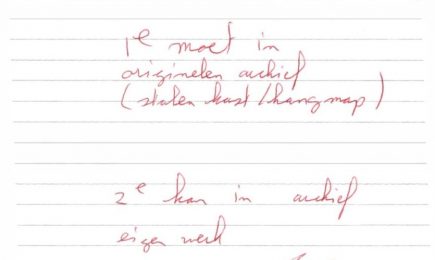 1e moet in
originelen archief
(stalen kast/hangmap)
2e kan in archief
eigen werk